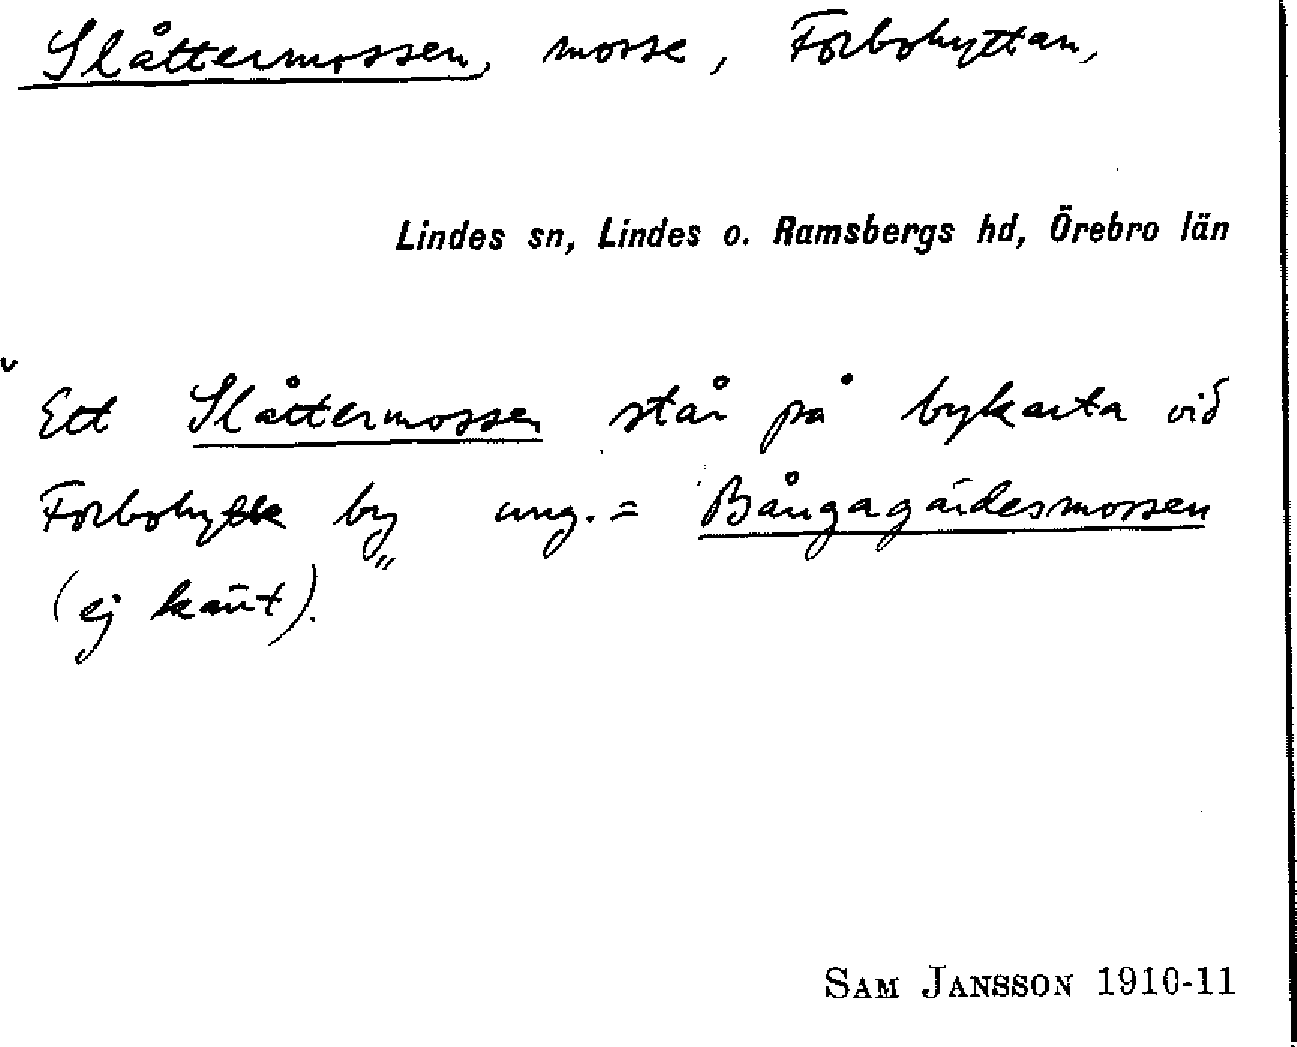 Slåttermossen, mosse, Forbohyttan,
Lindes sn, Lindes o. Ramsbergs hd, Örebro län
Ett Slåttermossen står på bykarta vid
Forbohytte by ung. = Bångagärdesmossen
(ej känt).
SAM JANSSON 1910-11